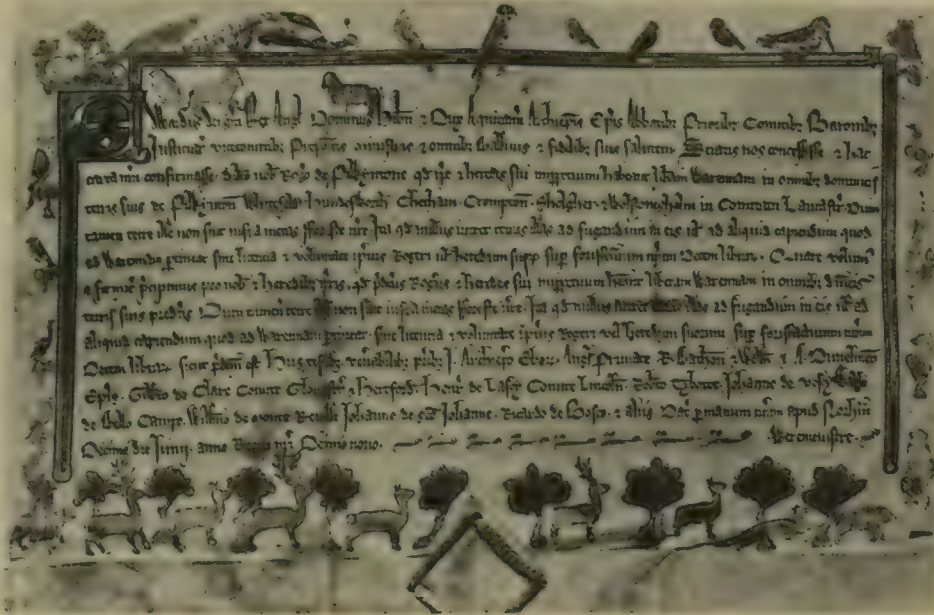 Edwardus dei gra Rex Angl Dominus Hibn ⁊ Dux Aquitann Archiepis Epis Abbatibz Prioribz Comitibz Baronibz
Justiciar vicecomitibz Prepositis ministris ⁊ omnibz Ballivis ⁊ fidelibz suis salutem Sciatis nos concessisse ⁊ hac
carta nra confirmasse. dilco nob Rogo de Pilkintone qd ipe ⁊ heredes sui imppetuum habeant libam Warennam in omnibz dominicis
terris suis de Pilkinton Whitefeld Undesworth Chetham Crompton ⁊ in Comitatu Lancastr. Dum
tamen terre ille non sint infra metas foreste nre. Ita qd nullus intret terras illas ad fugandum in eis vl ad aliquid capiendum quod
ad Warennam pertineat sine licencia ⁊ voluntate ipius Rogeri vl heredum suoz sup forisfcturam nram Decem librar. Quare volum
⁊ firmit precipimus pro nob ⁊ heredibz nris. qd pdcus Rogus ⁊ heredes sui imppetuum heant libam Warennam in omnibz dnicis
terris suis predcis. Dum tamen terre ille non sint infra metas foreste nre. Ita qd nullus intret terras illas ad fugandum in eis vl ad
aliquid capiendum quod ad Warennam pertineat. sine licencia ⁊ voluntate ipius Rogeri vel heredum suorum sup forisfacturam nram
Decem librar. sicut pdcm est. Hiis testibz venabilibz pribz J. Archiepo Ebor. Angl Primate R. Bathon ⁊ Well ⁊ A. Dunelmen
Epis. Gilbto de Clare Comite Gloucestr ⁊ Hertford. Henr de Lascy Comite Lincoln. Robto Johanne de Vescy
de Bello Campo. Willmo de Monte Revelli Johanne de sco Johanne. Ricardo de Bosco. ⁊ aliis. Dat p manum nram apud
Decimo die Junii. anno Regni nri Decimo nono.